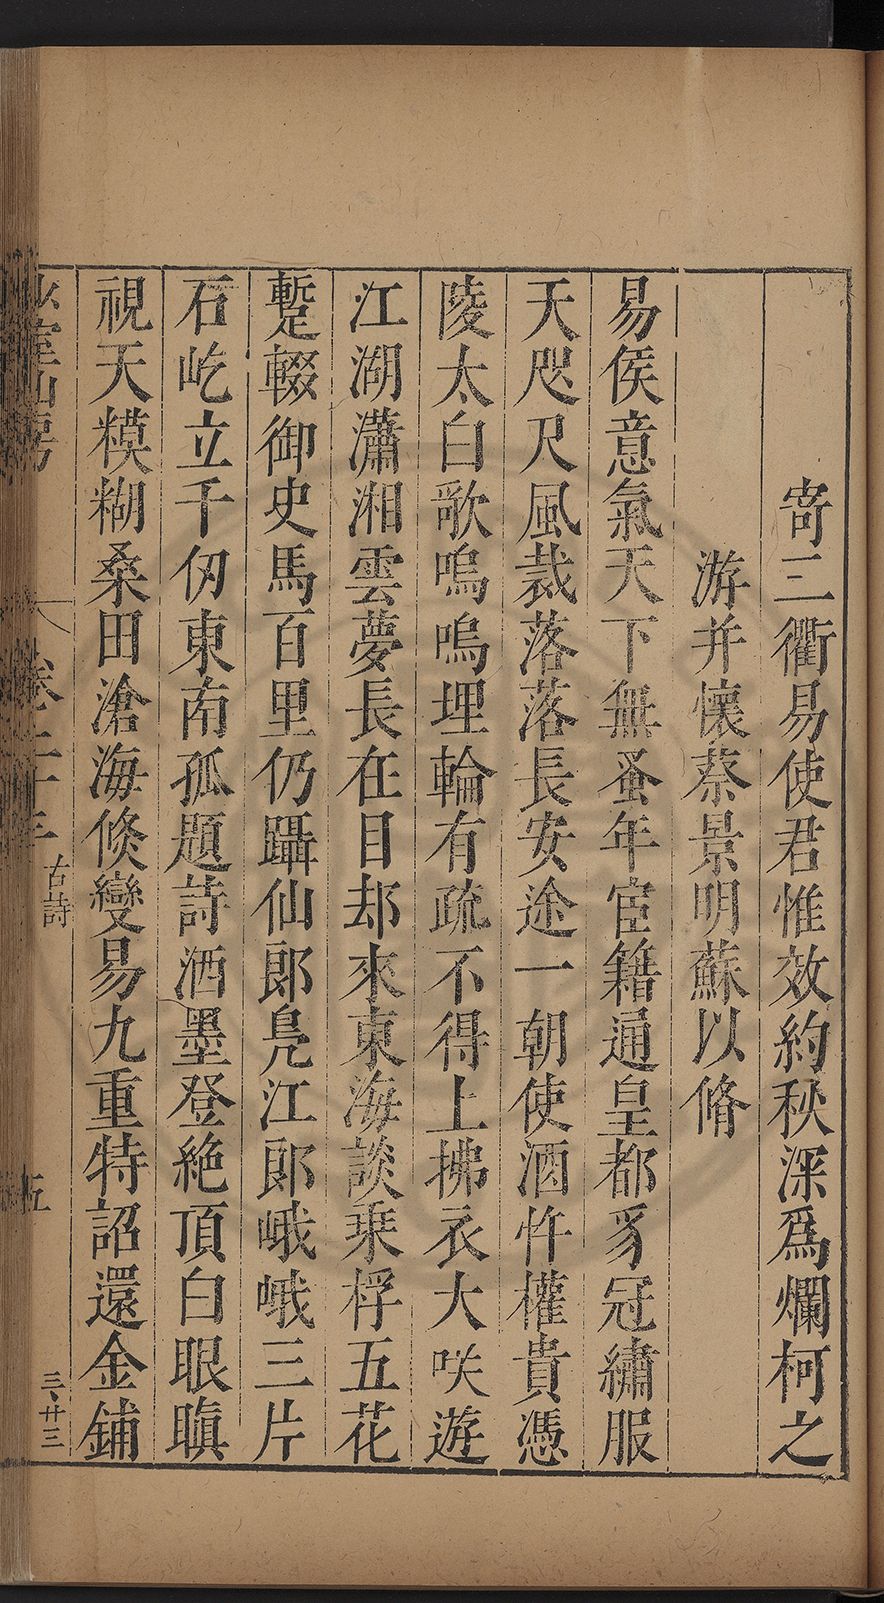 寄三衢易使君惟效約秋深爲爛柯之
游并懷蔡景明蘇以脩
易侯意氣天下無蚤年宦籍通皇都豸冠繡服
天咫尺風裁落落長安途一朝使酒忤權貴憑
陵太白歌嗚嗚埋輪有疏不得上拂衣大咲遊
江湖瀟湘雲夢長在目却來東海談乗桴五花
蹔輟御史馬百里仍躡仙郎舄江郎峨峨三片
石屹立千仞東南孤題詩洒墨登絶頂白眼瞋
視天糢糊桑田滄海倐變易九重特詔還金鋪
少室山房 卷二十三 古詩 五 三、廿三